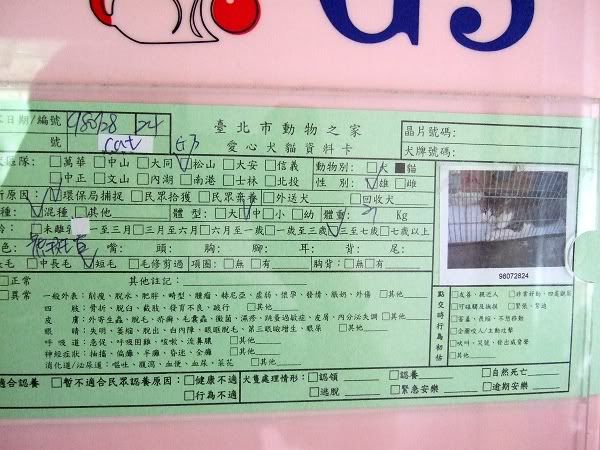 GS
日期/編號 980728 24 臺北市動物之家 晶片號碼:
號 cat 愛心犬貓資料卡 犬牌號碼:
區隊: □萬華 □中山 □大同 ☑松山 □大安 □信義 動物別: □犬 ■貓
□中正 □文山 □內湖 □南港 □士林 □北投 性別: ☑雄 □雌
原因: ☑環保局捕捉 □民眾拾獲 □民眾棄養 □外送犬 □回收犬
種: ☑混種 □其他 體型: □大 ☑中 □小 □幼 體重: Kg
□未離乳 □一至三月 □三月至六月 □六月至一歲 □一歲至三歲 ☑三至七歲 □七歲以上
色: 嘴: 頭: 胸: 腳: 耳: 背: 尾:
長毛 □中長毛 ☑短毛 □毛修剪過 項圈: □無 □有 胸背: □無 □有
98072824
□正常 其他註記:
□異常 一般外表: 削瘦、脫水、肥胖、畸型、腫瘤、赫尼亞、虛弱、懷孕、發情、脹奶、外傷 □其他
四肢: 骨折、脫臼、截肢、發育不良、跛行 □其他
皮膚: 外寄生蟲、脫毛、疥癬、毛囊蟲、黴菌、濕疹、跳蚤過敏症、皮屑、內分泌失調 □其他
眼睛: 失明、萎縮、脫出、白內障、眼瞼脫毛、第三眼瞼增生、眼屎 □其他
呼吸道: 急促、呼吸困難、咳嗽、流鼻膿 □其他
神經症狀: 抽搐、偏癱、半癱、昏迷、全癱 □其他
消化道/泌尿道: 嘔吐、腹瀉、血便、血尿、茶花 □其他
點交時行為初估
□友善、親近人 □非常好動、四處觀顧
□可碰觸及撫摸 □緊張、警造
□害羞、畏縮、不想移動
□企圖咬人/主動攻擊
□吠叫、哭號、發出威脅聲
□其他
適合認養 □暫不適合民眾認養原因: □健康不適 犬隻處理情形: □認領 □認養 □自然死亡
□行為不適 □逃脫 □緊急安樂 □逾期安樂